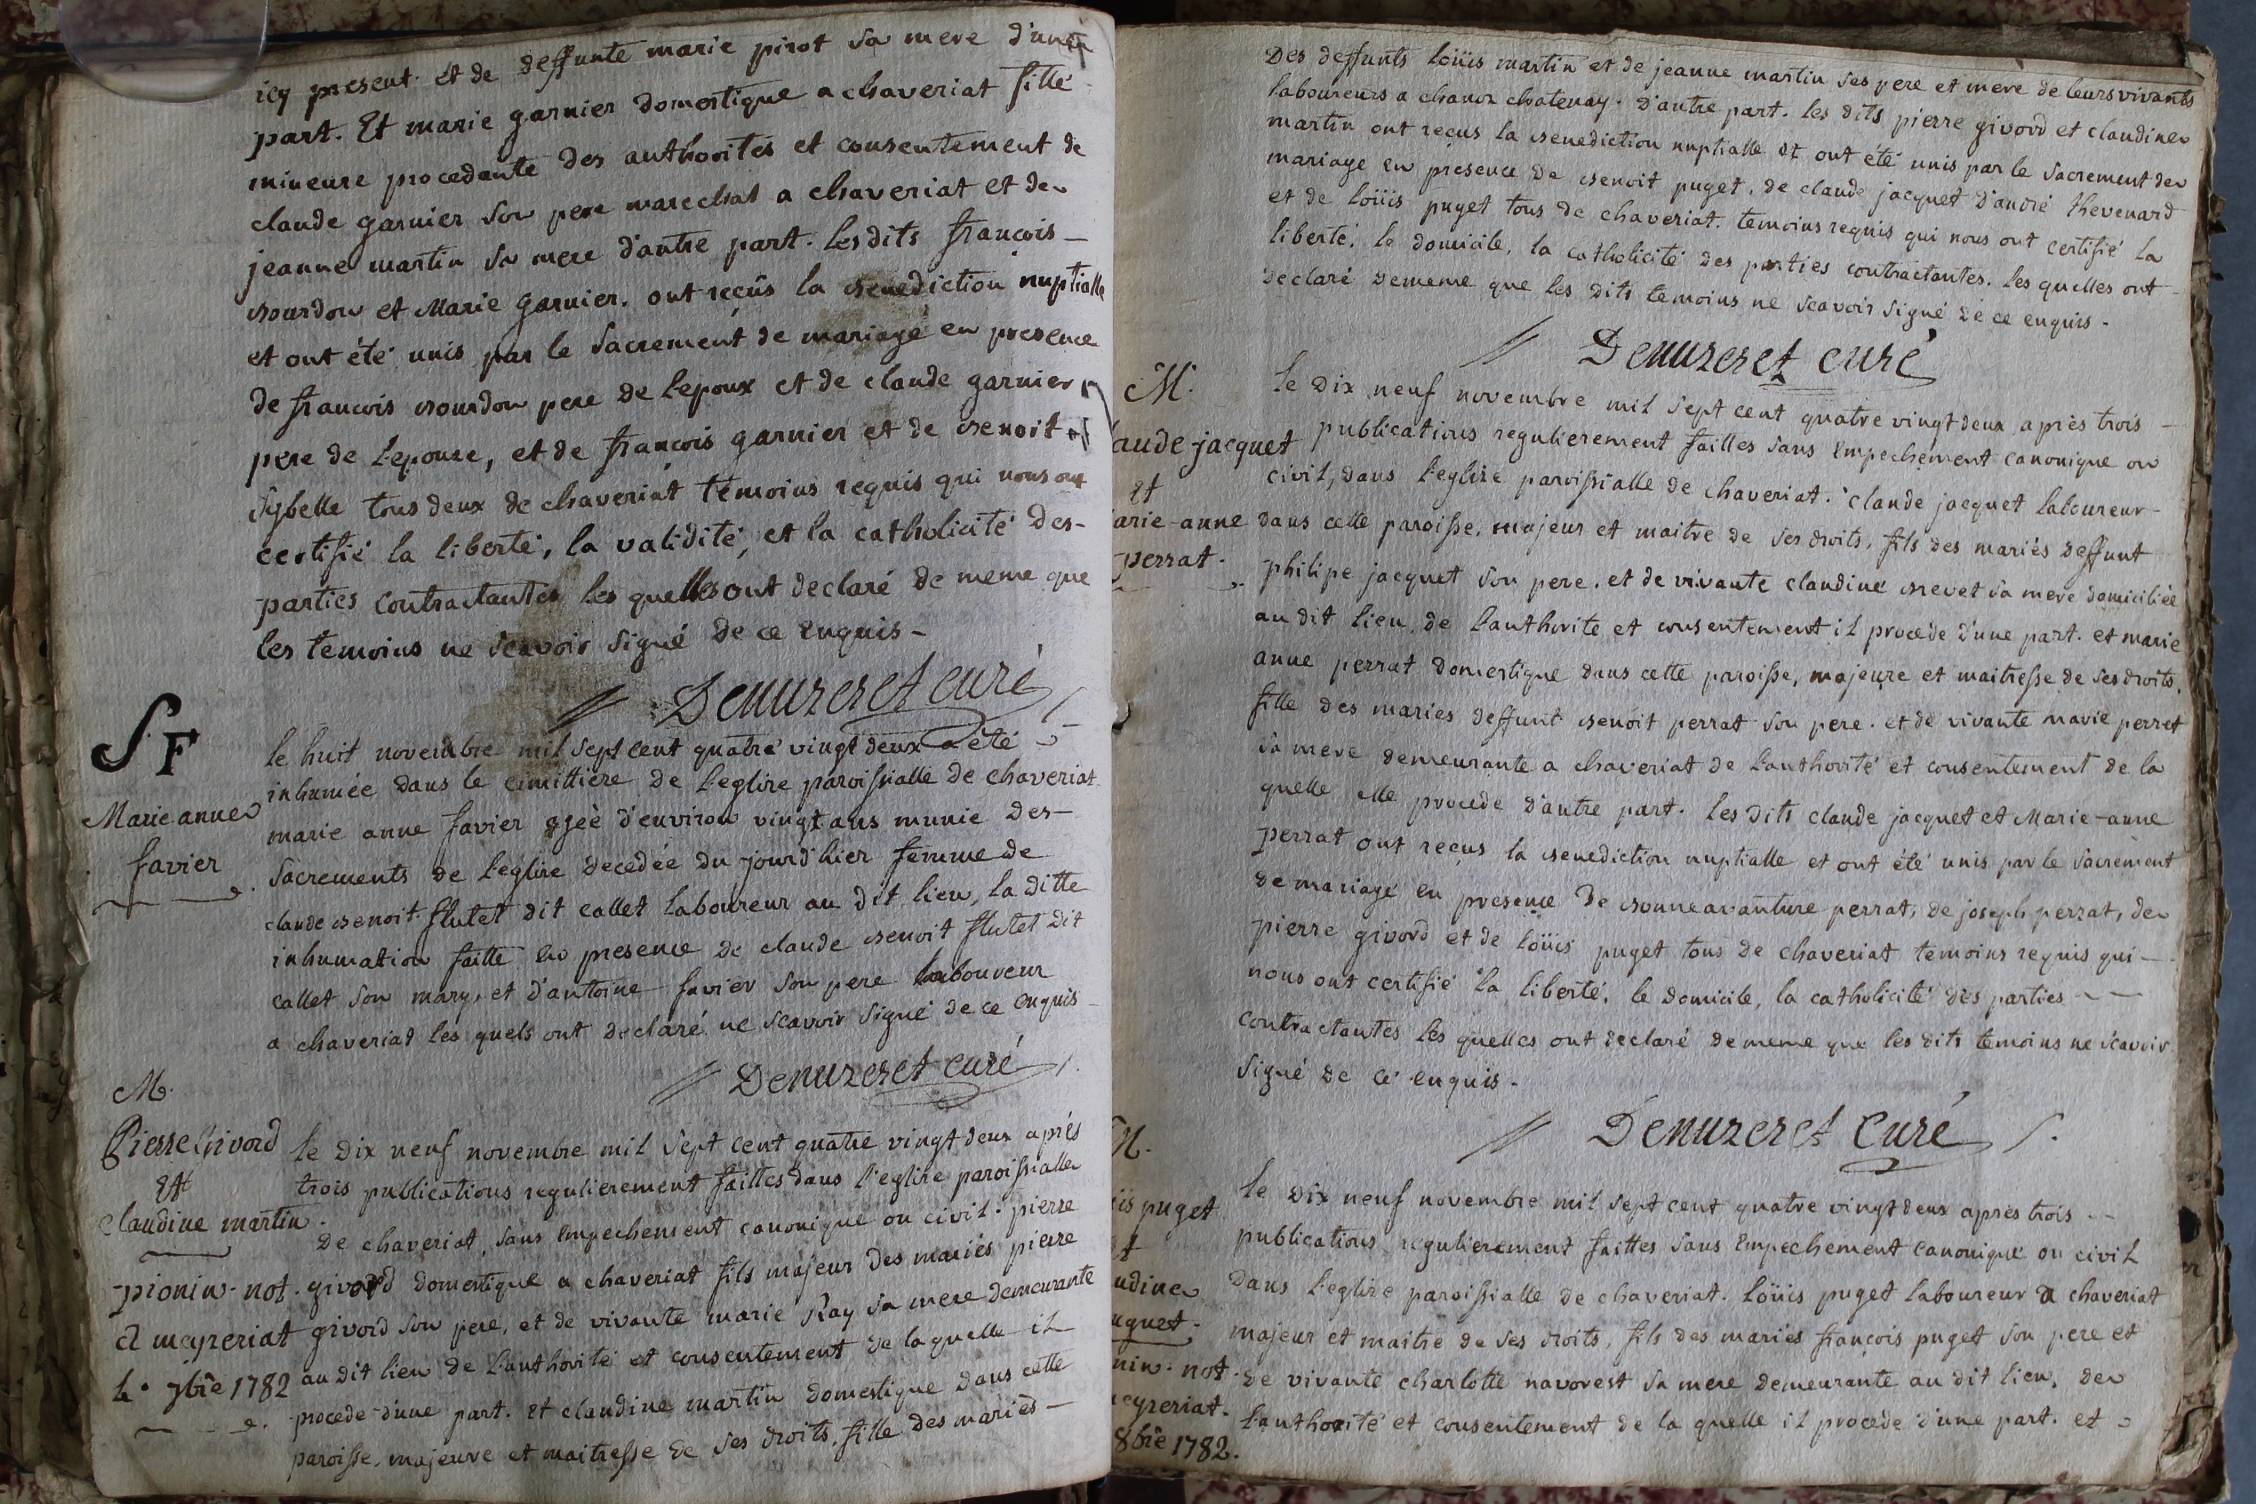 icy present. et de deffunte marie pirot sa mere d'une
part. Et marie garnier domestique a chaveriat fille
mineure procedante des authorités et consentement de
claude garnier son pere marechal a chaveriat et de
jeanne martin sa mere d'autre part. les dits francois
bourdon et Marie garnier. ont reçus la benediction nuptialle
et ont été unis par le sacrement de mariage en presence
de francois bourdon pere de l'epoux et de claude garnier
pere de l'epouse, et de francois garnier et de benoit
sybelle tous deux de chaveriat temoins requis qui nous ont
certifié la liberté, la validité, et la catholicité des
parties contractantes les quelles ont declaré de meme que
les temoins ne scavoir signé de ce enquis
Denuzeret curé
S. F
Marie anne
favier
le huit novembre mil sept cent quatre vingt deux a été
inhumée dans le cimittiere de l'eglise paroissialle de chaveriat
marie anne favier agée d'environ vingt ans munie des
sacrements de l'eglise decedée du jourd'hier femme de
claude benoit flutet dit callet laboureur au dit lieu, la ditte
inhumation faitte en presence de claude benoit flutet dit
callet son mary, et d'antoine favier son pere laboureur
a chaveriat les quels ont declaré ne scavoir signé de ce enquis
Denuzeret curé
M.
Pierre Givord
Et
Claudine martin.
pionin. not.
a meyreriat
le 7bre 1782
le dix neuf novembre mil sept cent quatre vingt deux après
trois publications regulierement faittes dans l'eglise paroissialle
de chaveriat, sans empechement canonique ou civil. pierre
givord domestique a chaveriat fils majeur des mariés pierre
givord son pere, et de vivante marie Ray sa mere demeurante
au dit lieu de l'authorité et consentement de la quelle il
procede d'une part. Et claudine martin domestique dans cette
paroisse, majeure et maitresse de ses droits, fille des mariés
Des deffunts loüis martin et de jeanne martin ses pere et mere de leurs vivants
laboureurs a chanoz chatenay. d'autre part. les dits pierre givord et claudine
martin ont reçus la benediction nuptialle et ont été unis par le sacrement de
mariage en presence de benoit puget, de claude jacquet d'andré thevenard
et de loüis puget tous de chaveriat. temoins requis qui nous ont certifié la
liberté, le domicile, la catholicité des parties contractantes. les quelles ont
declaré dememe que les dits temoins ne scavoir signé de ce enquis.
Denuzeret curé
M.
aude jacquet
et
arie-anne
perrat.
le dix neuf novembre mil sept cent quatre vingt deux après trois
publications regulierement faittes sans empechement canonique ou
civil, dans l'eglise paroissialle de chaveriat. claude jacquet laboureur
dans cette paroisse, majeur et maitre de ses droits, fils des mariés deffunt
philipe jacquet son pere. et de vivante claudine brevet sa mere domiciliée
au dit lieu de l'authorité et consentement il procede d'une part. et marie
anne perrat domestique dans cette paroisse, majeure et maitresse de ses droits,
fille des maries deffunt benoit perrat son pere. et de vivante marie perret
sa mere demeurante a chaveriat de l'authorité et consentement de la
quelle elle procede d'autre part. les dits claude jacquet et Marie-anne
perrat ont reçus la benediction nuptialle et ont été unis par le sacrement
de mariage en presence de bonneavanture perrat, de joseph perrat, de
pierre givord et de loüis puget tous de chaveriat temoins requis qui
nous ont certifié la liberté, le domicile, la catholicité des parties
contractantes les quelles ont declaré dememe que les dits temoins ne scavoir
signé de ce enquis.
Denuzeret Curé
M.
üis puget
et
udine
uguet.
nin. not.
eyreriat.
8bre 1782.
le dix neuf novembre mil sept cent quatre vingt deux après trois
publications regulierement faittes sans empechement canonique ou civil
dans l'eglise paroissialle de chaveriat. loüis puget laboureur a chaveriat
majeur et maitre de ses droits, fils des mariés françois puget son pere et
de vivante charlotte navorest sa mere demeurante au dit lieu, de
l'authorité et consentement de la quelle il procede d'une part. et